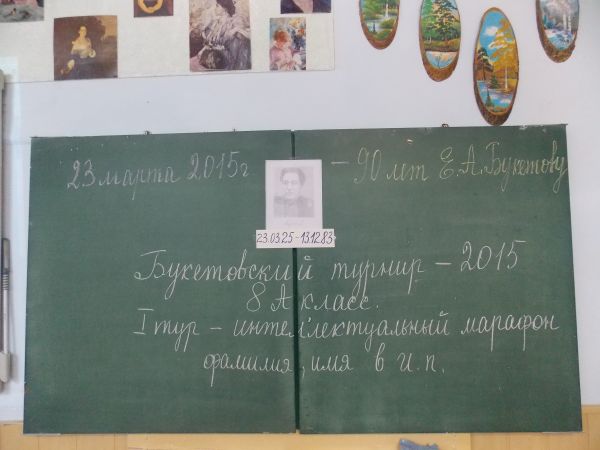 23 марта 2015г – 90 лет Е.А.Букетову
23.03.25-13.12.83
Букетовский турнир – 2015
8 А класс.
I тур – интеллектуальный марафон
фамилия, имя в и.п.